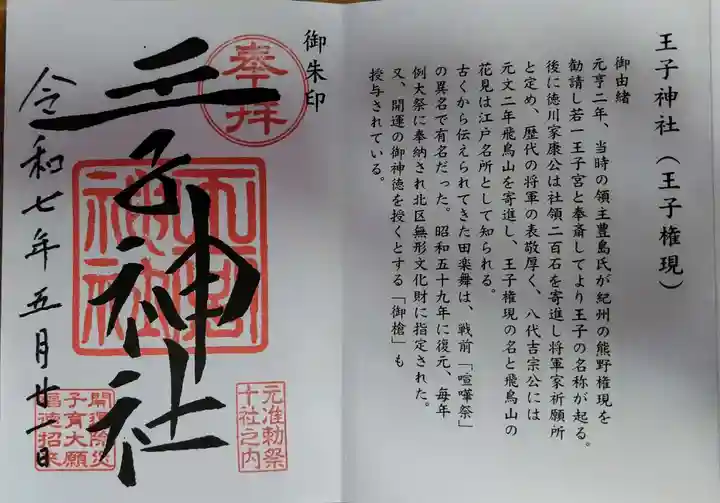 王子神社（王子権現）
御由緒
元亨二年、当時の領主豊島氏が紀州の熊野権現を
勧請し若一王子宮と奉斎してより王子の名称が起る。
後に徳川家康公は社領二百石を寄進し将軍家祈願所
と定め、歴代の将軍の表敬厚く、八代吉宗公には
元文二年飛鳥山を寄進し、王子権現の名と飛鳥山の
花見は江戸名所として知られる。
古くから伝えられてきた田楽舞は、戦前「喧嘩祭」
の異名で有名だった。昭和五十九年に復元、毎年
例大祭に奉納され北区無形文化財に指定された。
又、開運の御神徳を授くとする「御槍」も
授与されている。
御朱印
奉拝
王子神社
王子
神社
元准勅祭
十社之内
令和七年五月廿一日
開運除災
子育大願